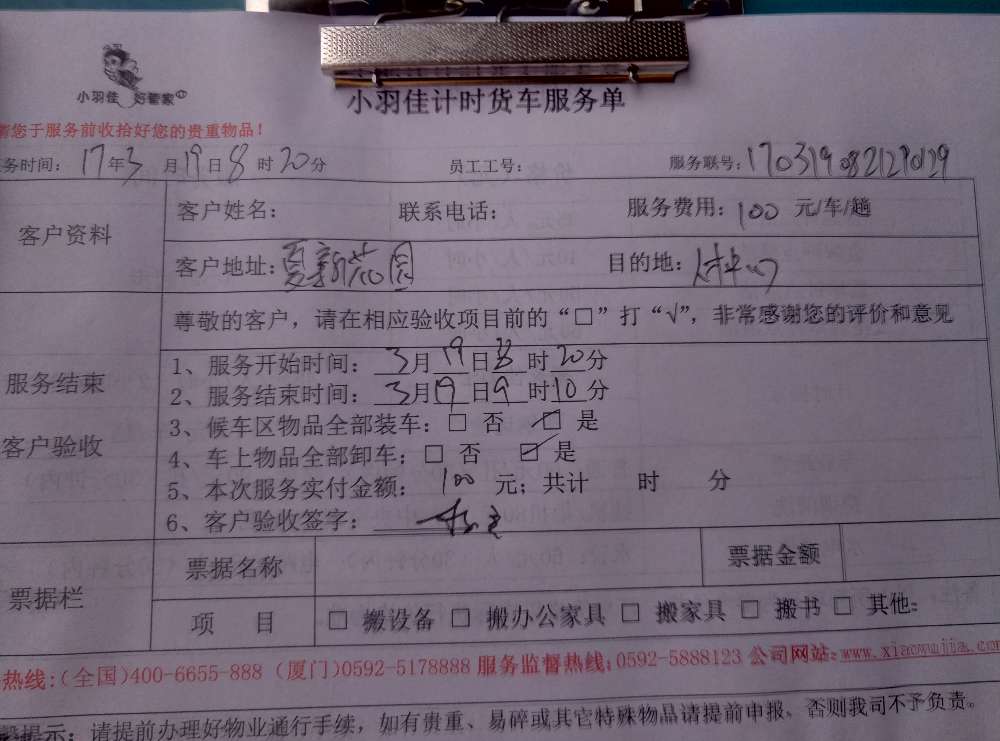 小羽佳 好管家
小羽佳计时货车服务单
您于服务前收拾好您的贵重物品！
务时间： 17年3月19日8时20分 员工工号： 服务联号：170319082129029
客户资料
客户姓名： 联系电话： 服务费用：100 元/车/趟
客户地址：夏新花园 目的地：
尊敬的客户，请在相应验收项目前的“□”打“√”，非常感谢您的评价和意见
服务结束
客户验收
1、服务开始时间：3月19日8时20分
2、服务结束时间：3月19日9时10分
3、候车区物品全部装车：□ 否 ☑ 是
4、车上物品全部卸车：□ 否 ☑ 是
5、本次服务实付金额：100 元；共计 时 分
6、客户验收签字：
票据栏
票据名称 票据金额
项 目 □ 搬设备 □ 搬办公家具 □ 搬家具 □ 搬书 □ 其他：
热线：(全国)400-6655-888 (厦门)0592-5178888 服务监督热线：0592-5888123 公司网站：www.xiaoyujia.com
提示：请提前办理好物业通行手续，如有贵重、易碎或其它特殊物品请提前申报，否则我司不予负责。